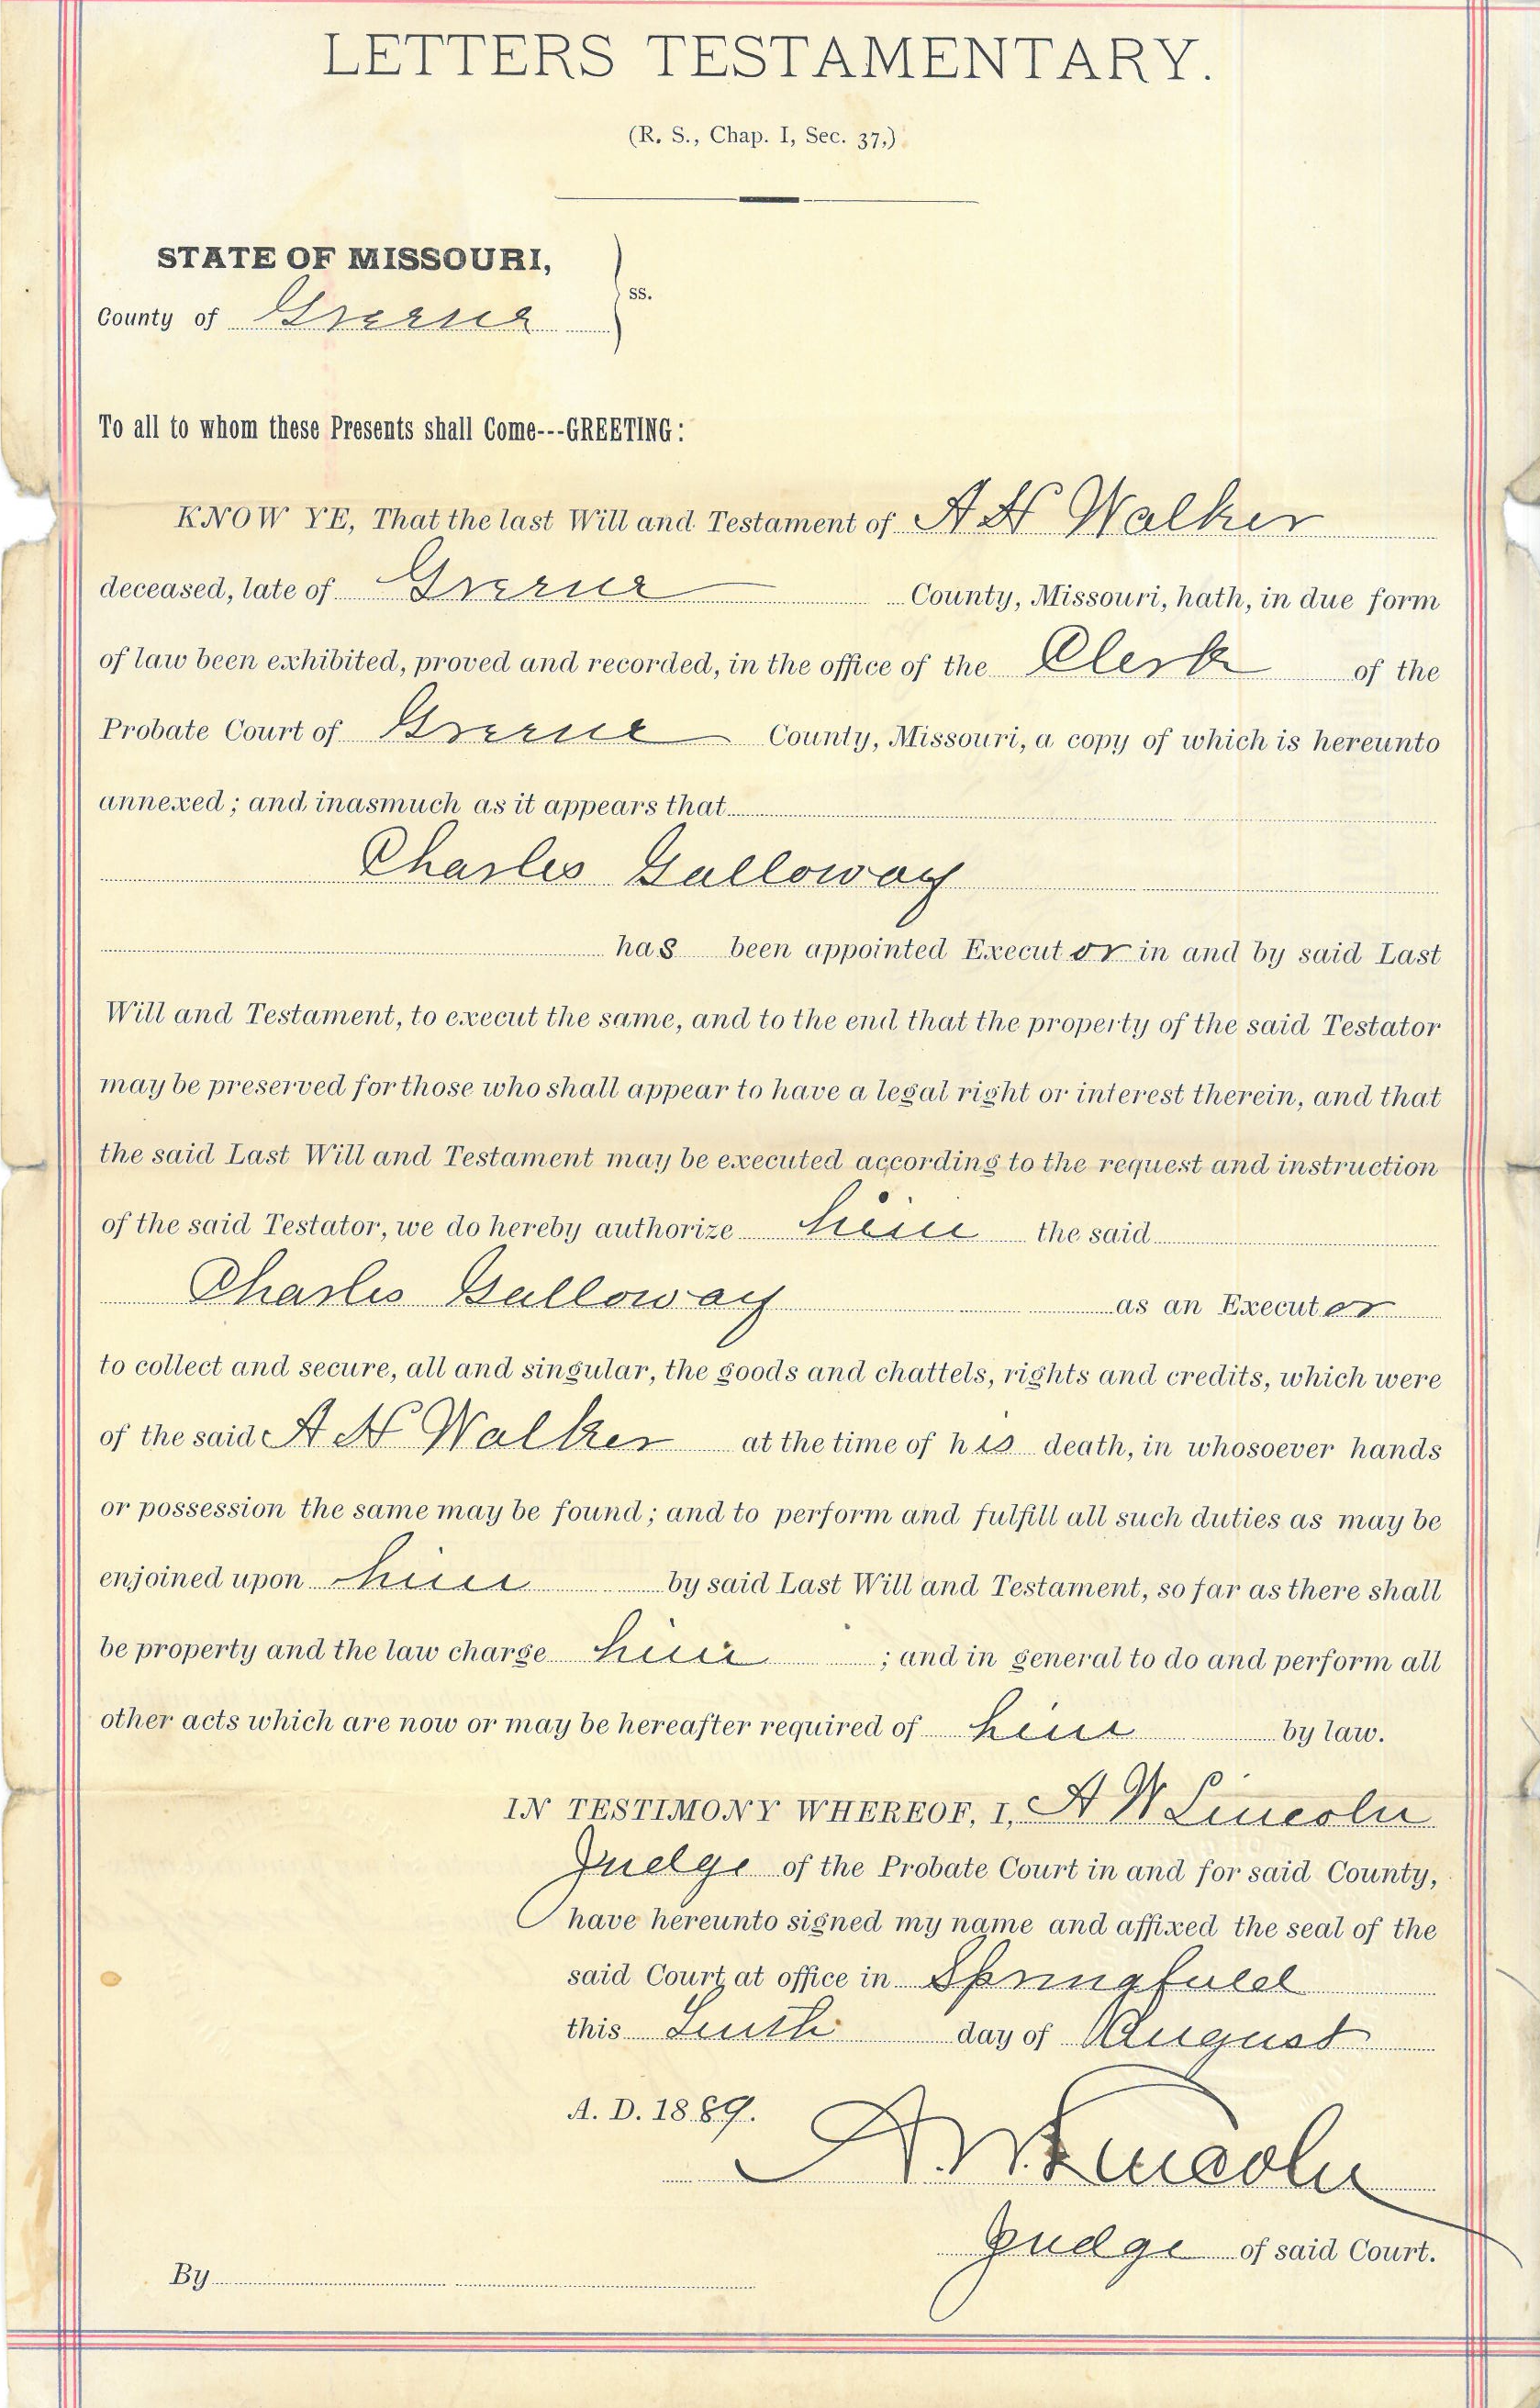 LETTERS TESTAMENTARY.
(R. S., Chap. I, Sec. 37,)
STATE OF MISSOURI,
ss.
County of Greene
To all to whom these Presents shall Come---GREETING:
KNOW YE, That the last Will and Testament of A H Walker
deceased, late of Greene County, Missouri, hath, in due form
of law been exhibited, proved and recorded, in the office of the Clerk of the
Probate Court of Greene County, Missouri, a copy of which is hereunto
annexed; and inasmuch as it appears that
Charles Galloway
has been appointed Executor in and by said Last
Will and Testament, to execut the same, and to the end that the property of the said Testator
may be preserved for those who shall appear to have a legal right or interest therein, and that
the said Last Will and Testament may be executed according to the request and instruction
of the said Testator, we do hereby authorize him the said
Charles Galloway as an Executor
to collect and secure, all and singular, the goods and chattels, rights and credits, which were
of the said A H Walker at the time of his death, in whosoever hands
or possession the same may be found; and to perform and fulfill all such duties as may be
enjoined upon him by said Last Will and Testament, so far as there shall
be property and the law charge him ; and in general to do and perform all
other acts which are now or may be hereafter required of him by law.
IN TESTIMONY WHEREOF, I, A W Lincoln
Judge of the Probate Court in and for said County,
have hereunto signed my name and affixed the seal of the
said Court at office in Springfield
this Tenth day of August
A. D. 1889.
A. W. Lincoln
Judge of said Court.
By